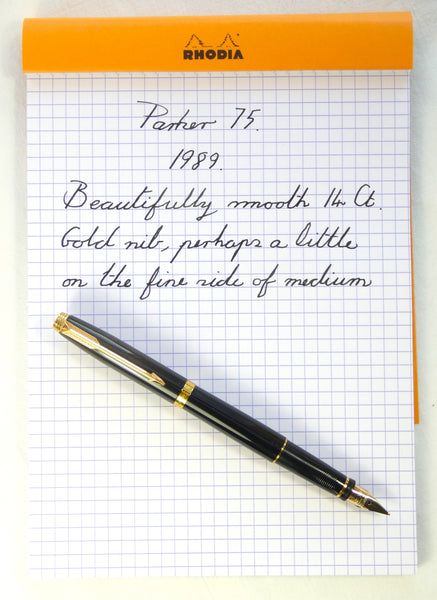 RHODIA
Parker 75.
1989.
Beautifully smooth 14 Ct.
Gold nib, perhaps a little
on the fine side of medium